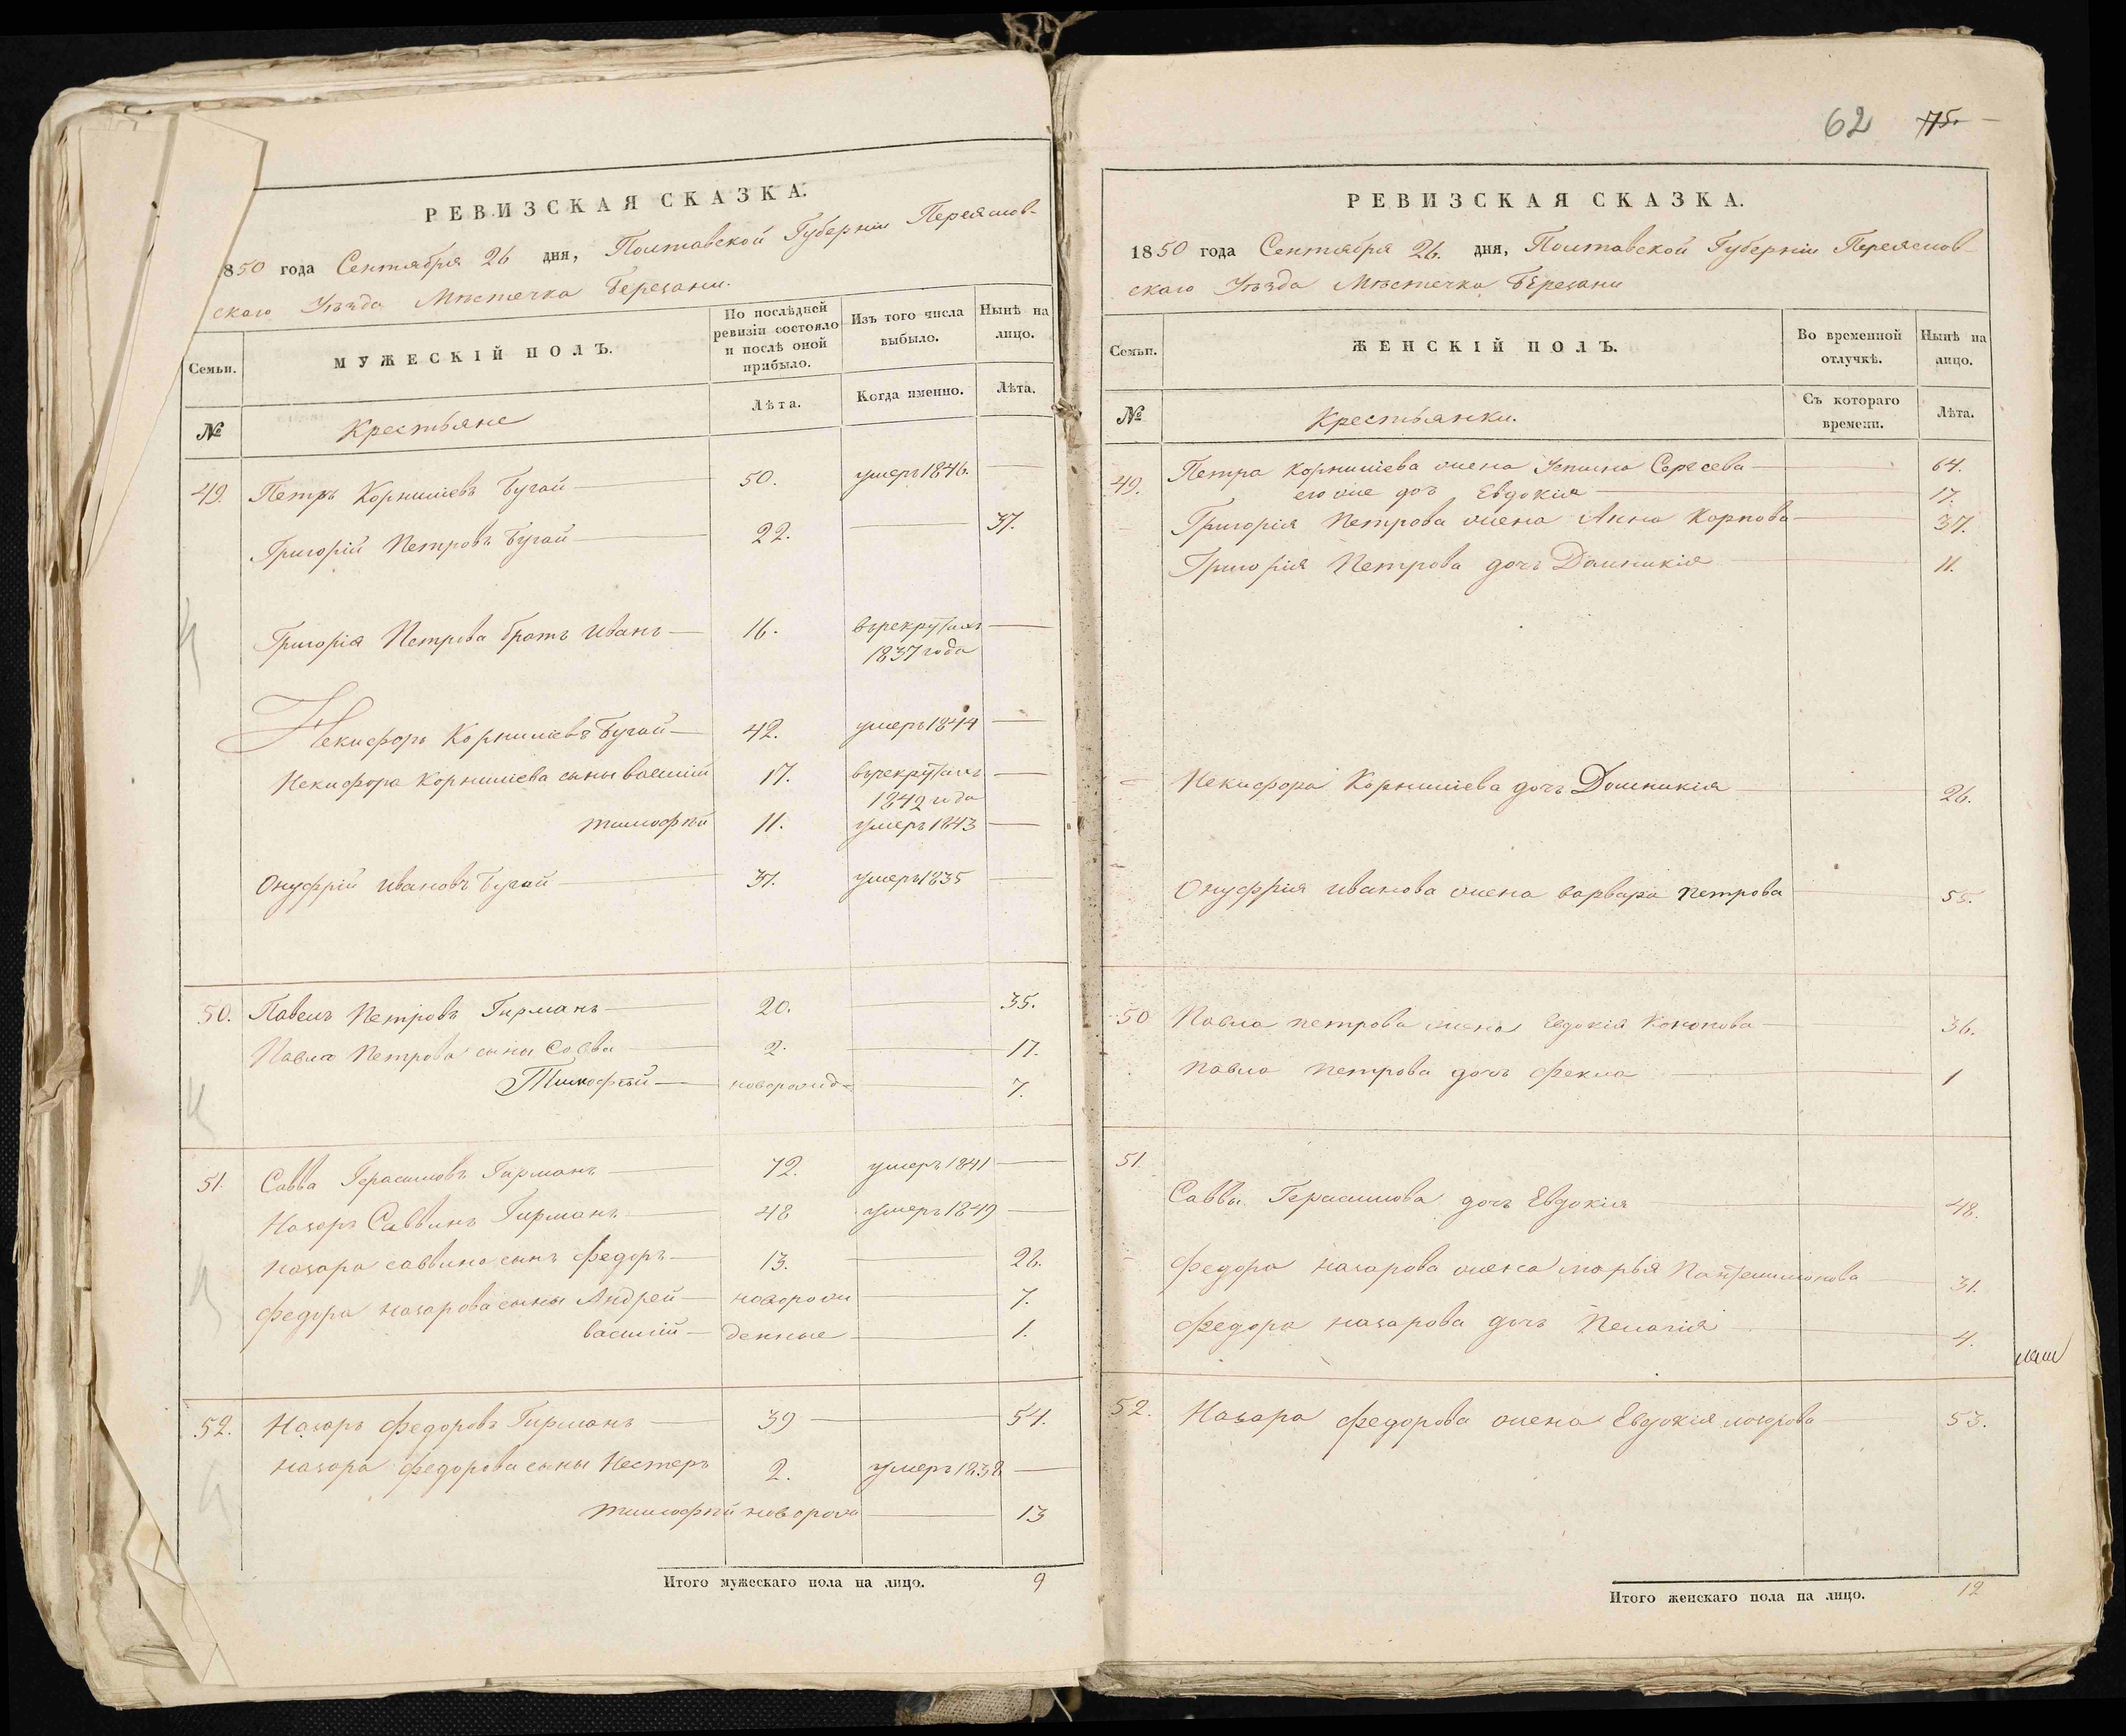 РЕВИЗСКАЯ СКАЗКА.
850 года Сентября 26 дня, Полтавской Губерніи Переяслов-
скаго Уѣзда Мѣстечка Березани.
Семьи.
МУЖЕСКІЙ ПОЛЪ.
По послѣдней ревизіи состояло и послѣ оной прибыло.
Изъ того числа выбыло.
Нынѣ на лицо.
№
Крестьяне
Лѣта.
Когда именно.
Лѣта.
49. Петръ Корниліевъ Бугай 50. умеръ 1846.
Григорій Петровъ Бугай 22. 37.
Григорія Петрова братъ Иванъ 16. въ рекрутахъ
1837 года
Некифоръ Корниліевъ Бугай 42. умеръ 1844
Некифора Корниліева сыны Василій 17. въ рекрутахъ
1842 года
Тимофѣй 11. умеръ 1843
Онуфрій Ивановъ Бугай 37. умеръ 1835
50. Павелъ Петровъ Гирманъ 20. 35.
Павла Петрова сыны Савва 2. 17.
Тимофѣй новорожд- 7.
51. Савва Герасимовъ Гирманъ 72. умеръ 1841
Назаръ Саввинъ Гирманъ 48 умеръ 1849
Назара Саввина сынъ Федоръ 13. 28.
Федора Назарова сыны Андрей новорож 7.
Василій денные 1.
52. Назаръ Федоровъ Гирманъ 39 54.
Назара Федорова сыны Нестеръ 2. умеръ 1838
Тимофѣй новорож 13
Итого мужескаго пола на лицо. 9
62 75.
РЕВИЗСКАЯ СКАЗКА.
1850 года Сентября 26. дня, Полтавской Губерніи Переяслов-
скаго Уѣзда Мѣстечка Березани
Семьи.
ЖЕНСКІЙ ПОЛЪ.
Во временной отлучкѣ.
Нынѣ на лицо.
№
Крестьянки.
Съ котораго времени.
Лѣта.
49. Петра Корниліева жена Устина Сергеева 64.
его же доч Евдокія 17.
Григорія Петрова жена Анна Карпова 37.
Григорія Петрова дочь Домникія 11.
Некифора Корниліева дочь Домникія 26.
Онуфрія Иванова жена Варвара Петрова 55.
50 Павла Петрова жена Евдокія Кононова 36.
Павла Петрова дочь Фекла 1
51.
Саввы Герасимова дочь Евдокія 48.
Федора Назарова жена Марья Пантелимонова 31.
Федора Назарова дочь Пелагія 4.
52. Назара Федорова жена Евдокія 53.
Итого женскаго пола на лицо. 12